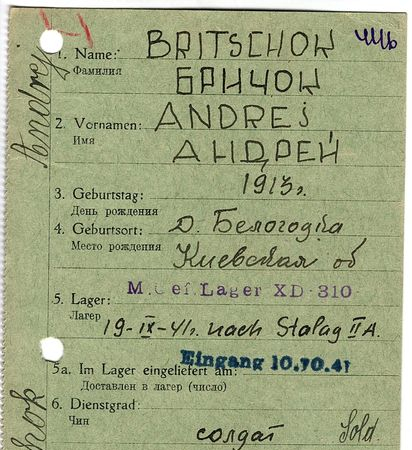 чць
Andrej
1. Name: BRITSCHOK
Фамилия БРИЧОК
2. Vornamen: ANDREJ
Имя АНДРЕЙ
1913г.
3. Geburtstag:
День рождения
4. Geburtsort: д. Белогодка
Место рождения Киевская об
M.Gef.Lager XD-310
5. Lager:
Лагерь 19-IX-41г. nach Stalag II A.
Eingang 10.10.41
5a. Im Lager eingeliefert am:
Доставлен в лагерь (число)
6. Dienstgrad:
Чин солдат Sold.